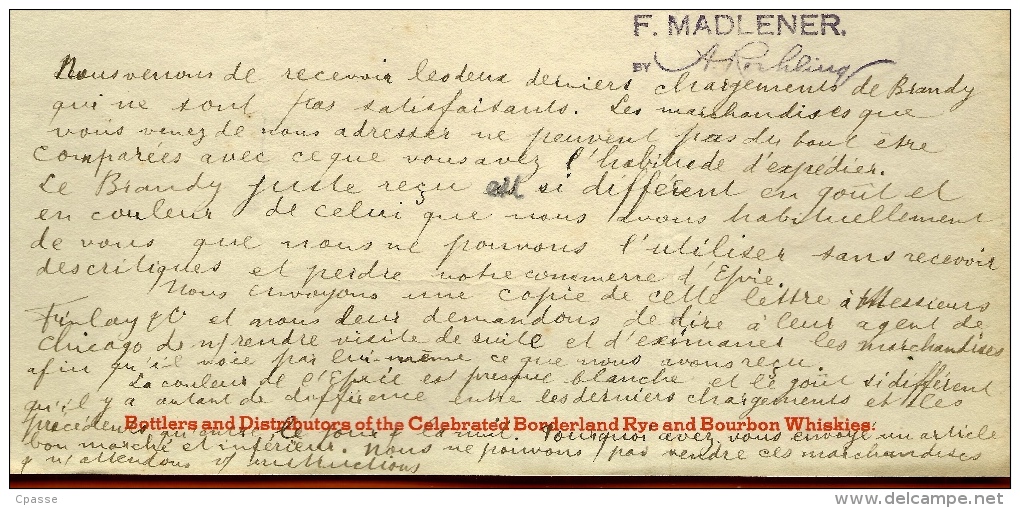 F. MADLENER.
BY A Rohling
Nous venons de recevoir les deux derniers chargements de Brandy
qui ne sont pas satisfaisants. Les marchandises que
vous venez de nous adresser ne peuvent pas du tout être
comparées avec ce que vous avez l'habitude d'expédier.
Le Brandy juste reçu est si différent en goût et
en couleur de celui que nous avons habituellement
de vous que nous ne pouvons l'utiliser sans recevoir
des critiques et perdre notre commerce d'Epicie.
Nous envoyons une copie de cette lettre à Messieurs
Finlay & C et nous leur demandons de dire à leur agent de
Chicago de n/rendre visite de suite et d'examiner les marchandises
afin qu'il voie par lui-même ce que nous avons reçu.
La couleur de l' est presque blanche et le goût si différent
qu'il y a autant de différence entre les derniers chargements et les
précédents qu'entre le jour & la nuit. Pourquoi avez vous envoyé un article
Bottlers and Distributors of the Celebrated Borderland Rye and Bourbon Whiskies.
bon marché et inférieur. Nous ne pouvons pas vendre ces marchandises
& n/attendons v/ instructions
Cpasse
www.delcampe.net